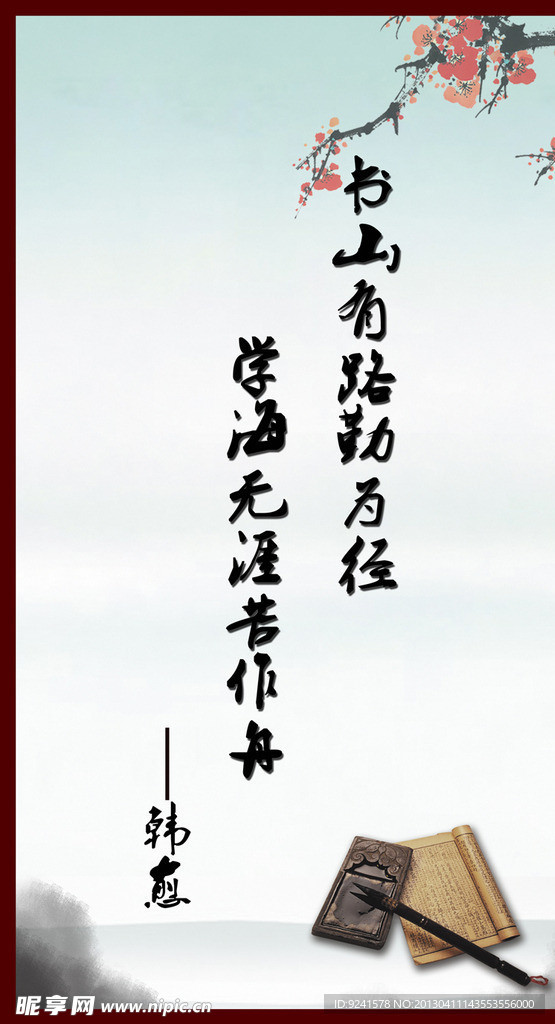 书山有路勤为径
学海无涯苦作舟
——韩愈
昵享网 www.nipic.cn
ID:9241578 NO:20130411143553556000